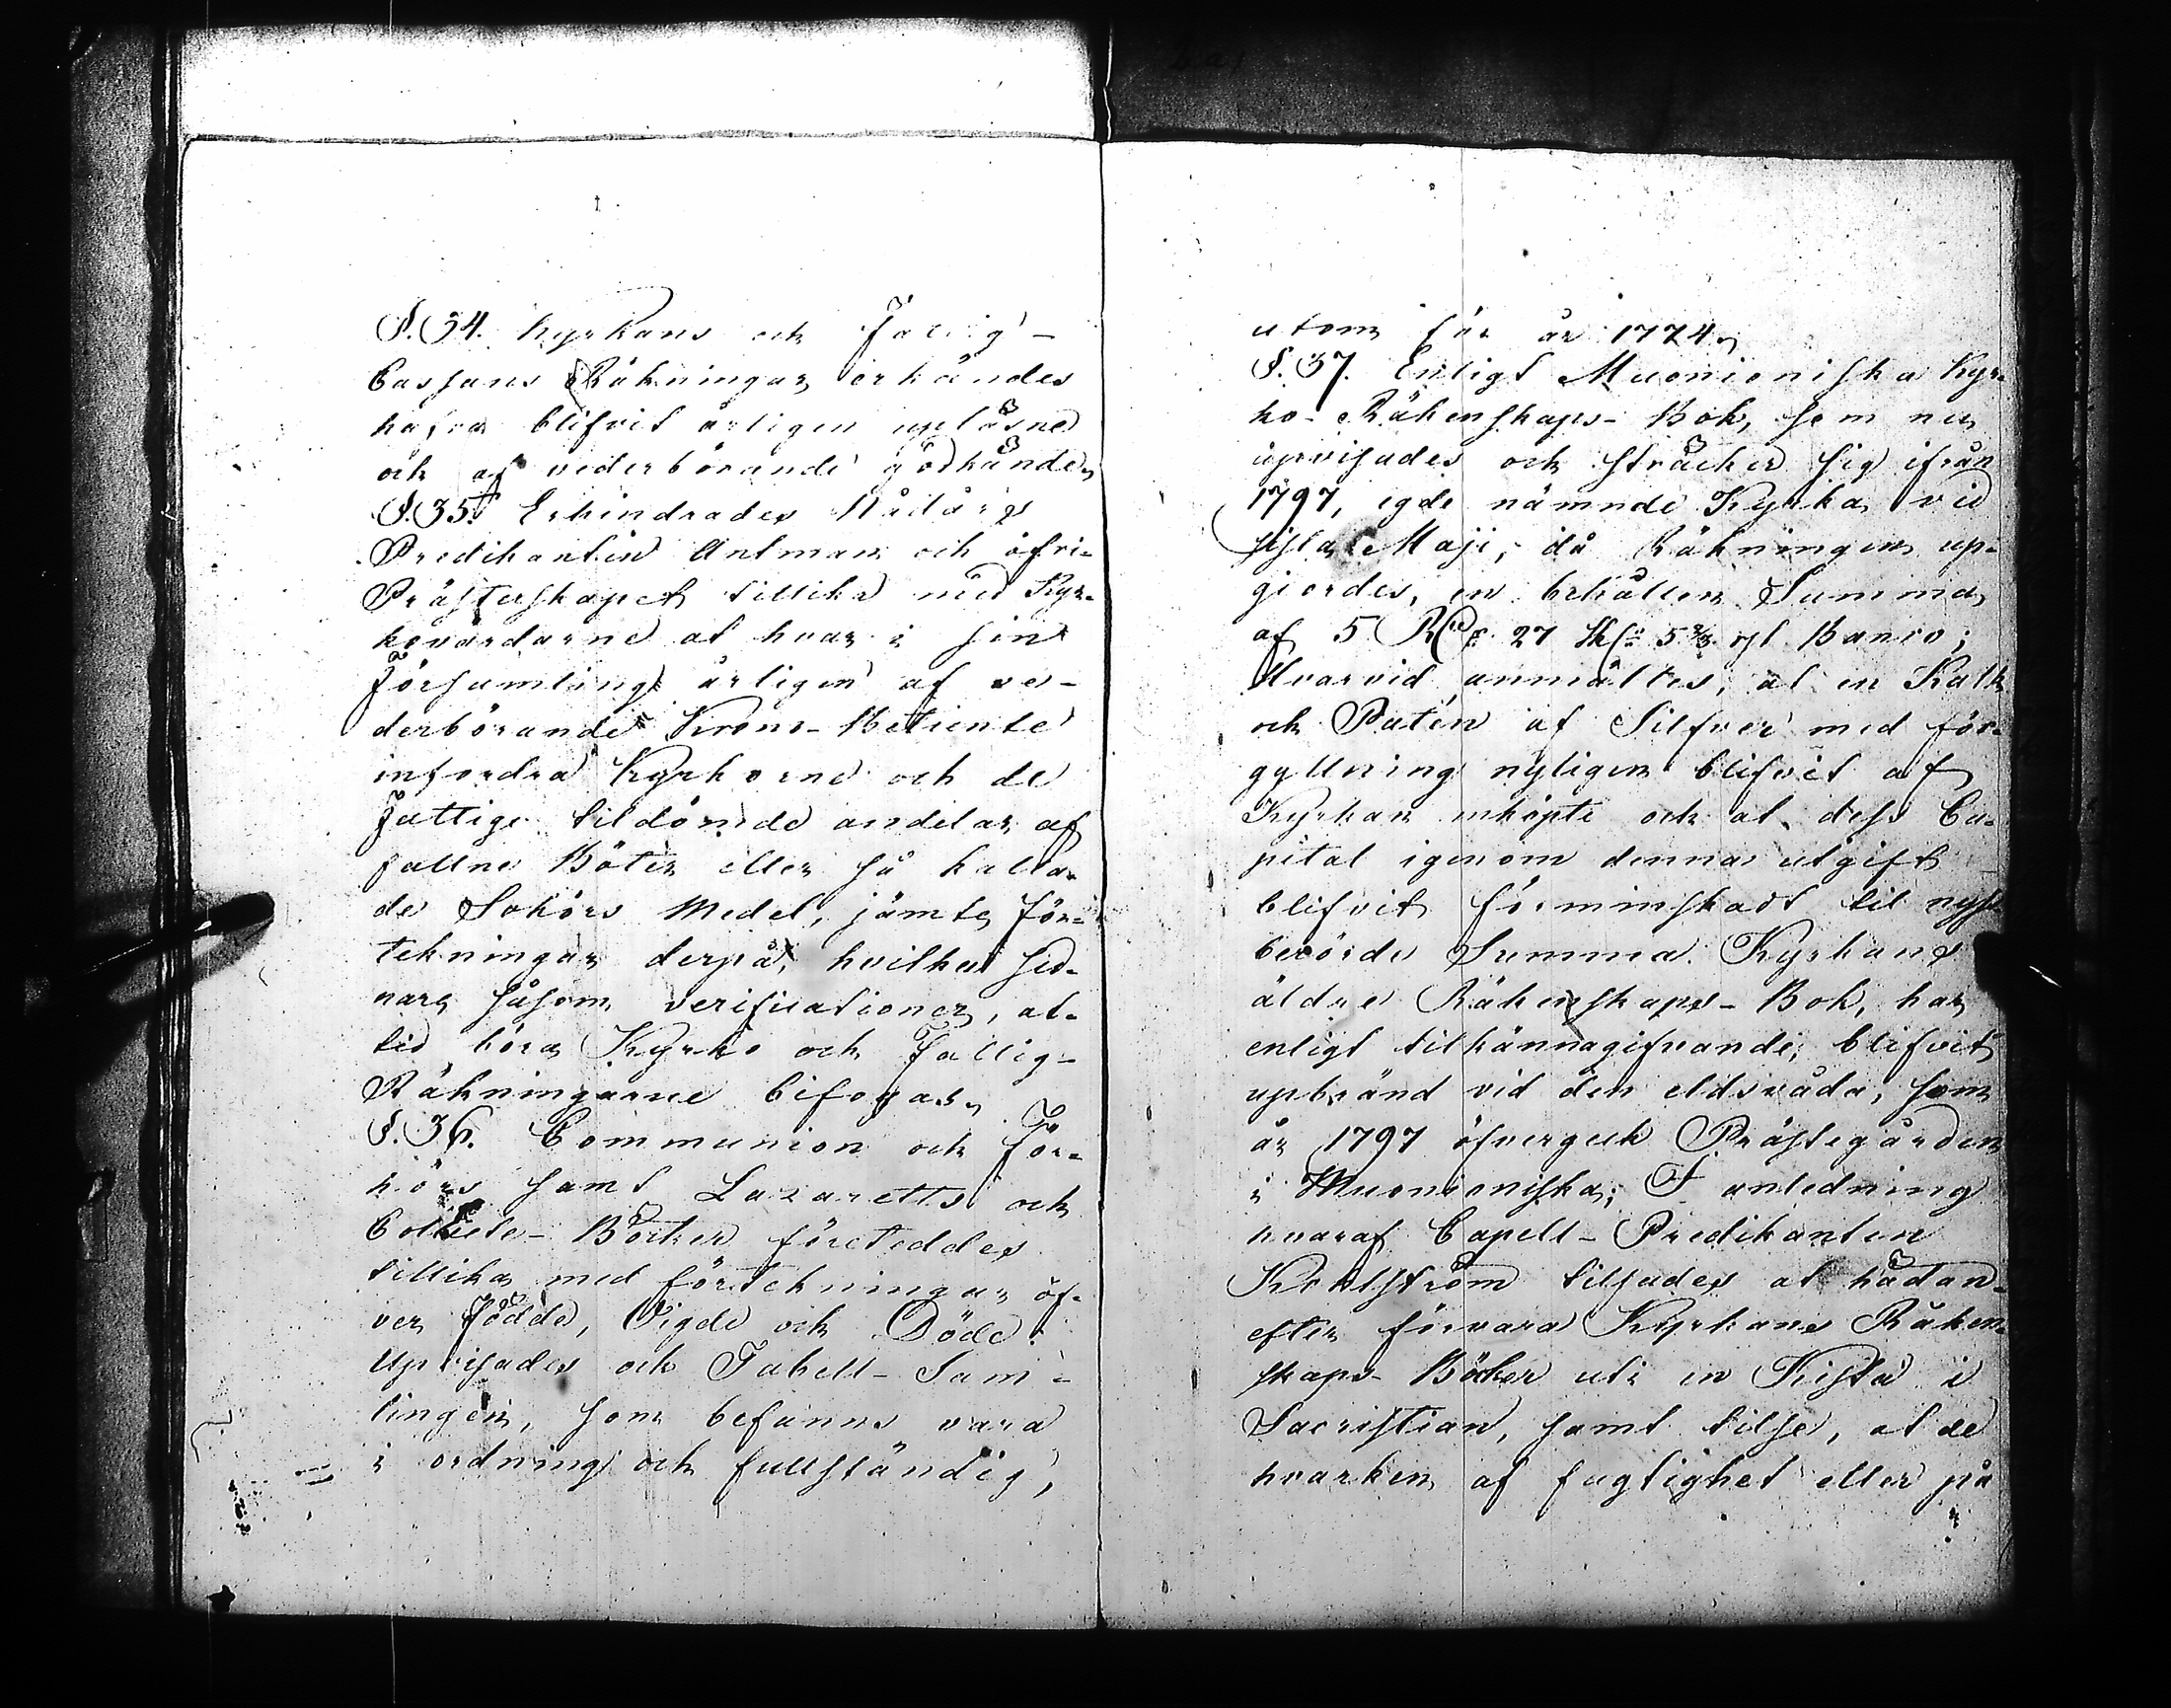 §. 34. Kyrkans och Fattig-
Cassans Räkningar erkändes
hafva blifvit årligen upläsne
och af vederbörande godkände,
§. 35. Erhindrades Nådårs
Predikanten Antman och öfri-
Prästerskapet tillika med Kyr-
kovärdarne at hvar i sin
Församling årligen af ve-
derbörande Krono-Betiente
infordra Kyrkorne och de
Fattige tildömde andelar af
fallne Böter eller så kalla-
de Sakörs Medel, jämte för-
tekningar derpå, hvilka sed-
nare såsom verificationer, al-
tid böra Kyrko och Fattig-
Räkningarne bifogas.
§. 36. Communion och För-
hörs samt Lazaretts och
Collecte-Böcker företeddes
tillika med förtekningar öf-
ver Födde, Vigde och Döde.
Upvisades ock Tabell-Sam-
lingen, som befanns vara
i ordning och fullständig,
utom för år 1774.
§. 37. Enligt Muonioniska Kyr-
ko-Räkenskaps-Bok, som nu
upvisades och sträcker sig ifrån
1797, egde nämnde Kyrka vid
sista Maji, då Räkningen up-
giordes, en behållen Summa
af 5 Rd 27 sk 5 2/3 rs Banco;
Hvarvid anmältes, at en Kalk
och Patén af Silfver med för-
gyllning nyligen blifvit af
Kyrkan inköpte och at dess Ca-
pital igenom denna utgift
blifvit förminskadt til nyss
berörde Summa. Kyrkans
äldre Räkenskaps-Bok, har
enligt tilkännagifvande, blifvit
upbränd vid den eldsvåda, som
år 1797 öfvergick Prästegården
i Muonioniska; I anledning
hvaraf Capell-Predikanten
Kohlström tilsades at hädan-
efter förvara Kyrkans Räken-
skaps-Böcker uti en Kista i
Sacristian, samt tilse, at de
hvarken af fugtighet eller på